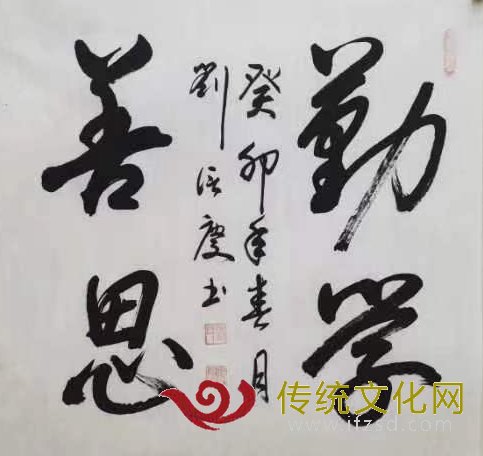 勤学
善思
癸卯年春月
劉
慶书
传统文化网
www.jfzsd.com